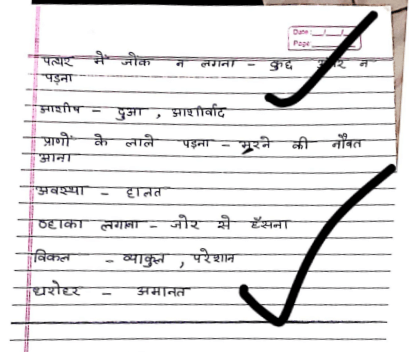 Date :
Page :
पत्थर में जोंक न लगना - कुछ असर न
पड़ना
आशीष - दुआ , आशीर्वाद
प्राणों के लाले पड़ना - मरने की नौबत
आना
अवस्था - हालत
ठहाका लगाना - जोर से हँसना
विकल - व्याकुल , परेशान
धरोहर - अमानत